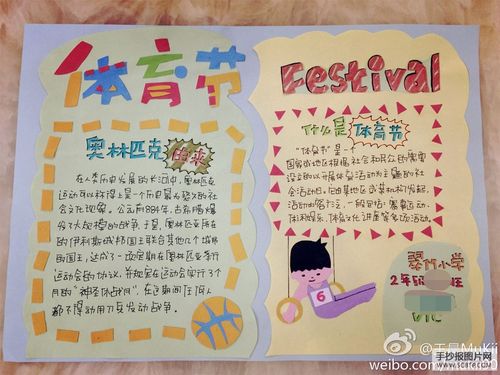 体育节
Festival
奥林匹克的来
在人类历史发展的长河中，奥林匹克
运动可以称得上是一个历史最为悠久的社
会文化现象。公元前884年，古希腊爆
发了大规模的战争，于是，奥林匹亚所在
的伊利斯城邦国王联合其他几个城邦
的国王，达成了一项定期在奥林匹亚举行
运动会的协议，并规定在运动会举行3个
月的"神圣休战月"，在这期间任何人
都不得动用刀兵发动战争。
什么是体育节
"体育节"是一个
国家或地区根据社会和民众的需要
设立的以开展体育活动为主题的社
会活动日，由某地区或某机构发起，
活动内容广泛，一般包括：竞赛运动、
休闲娱乐、体育文化讲座等多项活动。
6
翠竹小学
2年级 班
@王晨MuKii
weibo.com
手抄报图片网
www.scafe.com